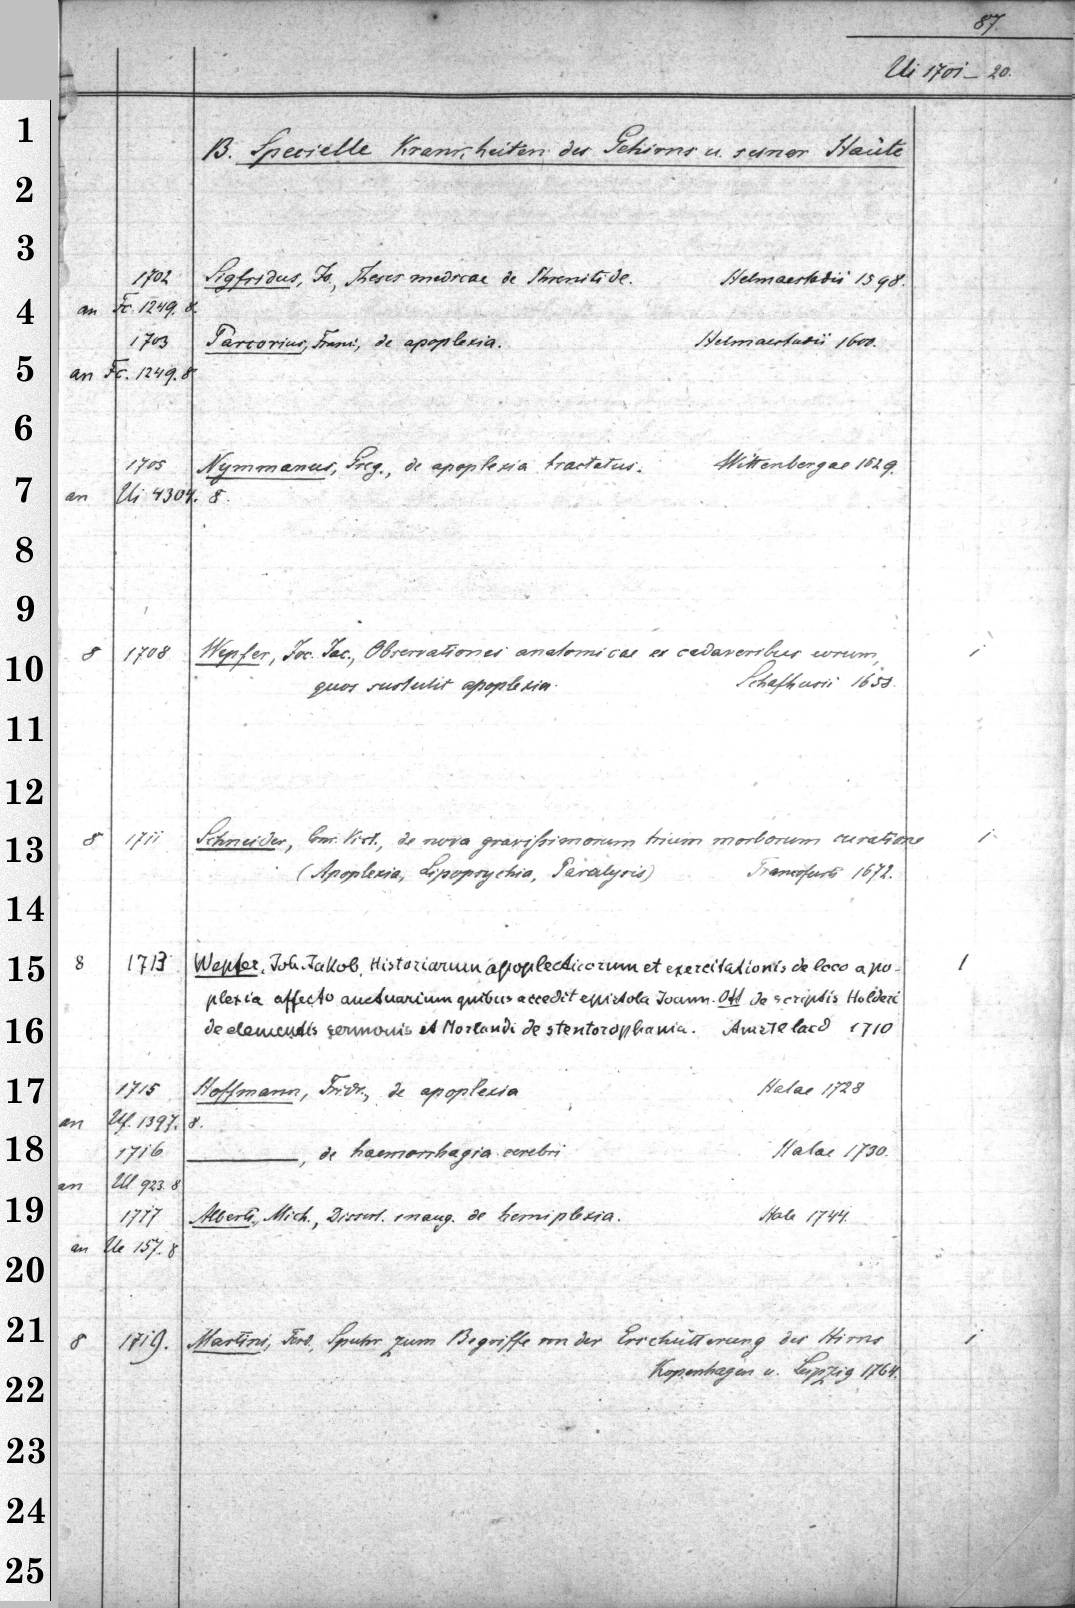 87.
Ui 1701–20.
1
B. Specielle Krankheiten des Gehirns u. seiner Häute
2
3
1702 Sigfridus, Jo., Theses medicae de Phrenitide. Helmaestadii 1598.
4 an Fc. 1249. 8.
1703 Parcovius, Franc., de apoplexia. Helmaestadii 1600.
5 an Fc. 1249. 8
6
1705 Nymmanus, Greg., de apoplexia tractatus. Wittenbergae 1629.
7 an Ui 4304. 8.
8
9
10 8 1708 Wepfer, Joc. Jac., Observationes anatomicae ex cadaveribus eorum, 1
quos sustulit apoplexia. Schafhusii 1658.
11
12
13 8 1711 Schneider, Conr. Vict., de nova gravissimorum trium morborum curatione 1
(Apoplexia, Lipopsychia, Paralysis) Francofurti 1672.
14
15 8 1713 Wepfer, Joh. Jakob, Historiarum apoplecticorum et exercitationis de loco apo- 1
plexia affecto auctuarium quibus accedit epistola Joann. Ott de scriptis Holderi
16 de elementis sermonis et Morlandi de stentorophania. Amstelaed 1710
17 1715 Hoffmann, Fridr., de apoplexia Halae 1728
an Uf. 1397. 8.
18 1716 ———, de haemorrhagia cerebri Halae 1730.
an Ul 923. 8
19 1717 Alberti, Mich., Dissert. inaug. de hemiplexia. Hale 1744.
an Ue 157. 8
20
21 8 1719. Martini, Ferd., Spuhr zum Begriffe von der Erschütterung des Hirns 1
22 Kopenhagen u. Leipzig 1764.
23
24
25